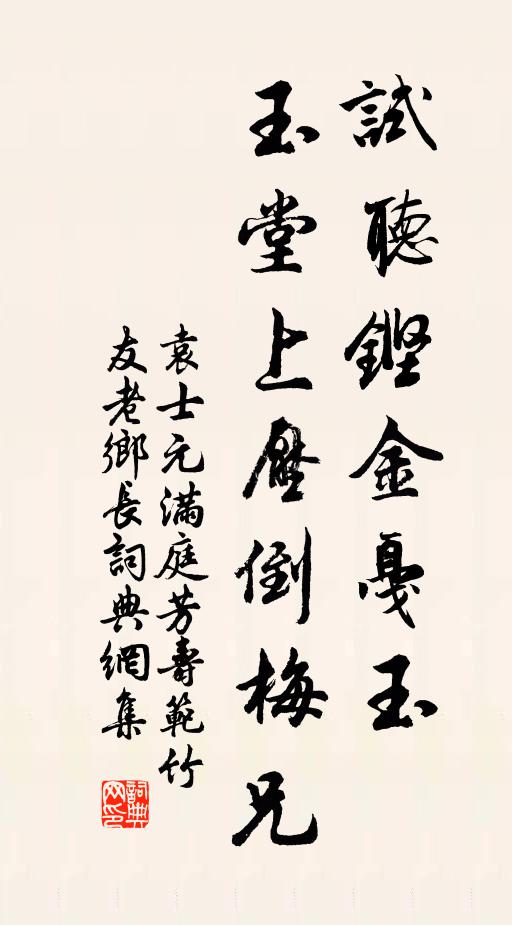 試聽鏗金戛玉
玉堂上壓倒梅兄
袁士元滿庭芳壽範竹
友老鄉長詞典網集
詞典网印